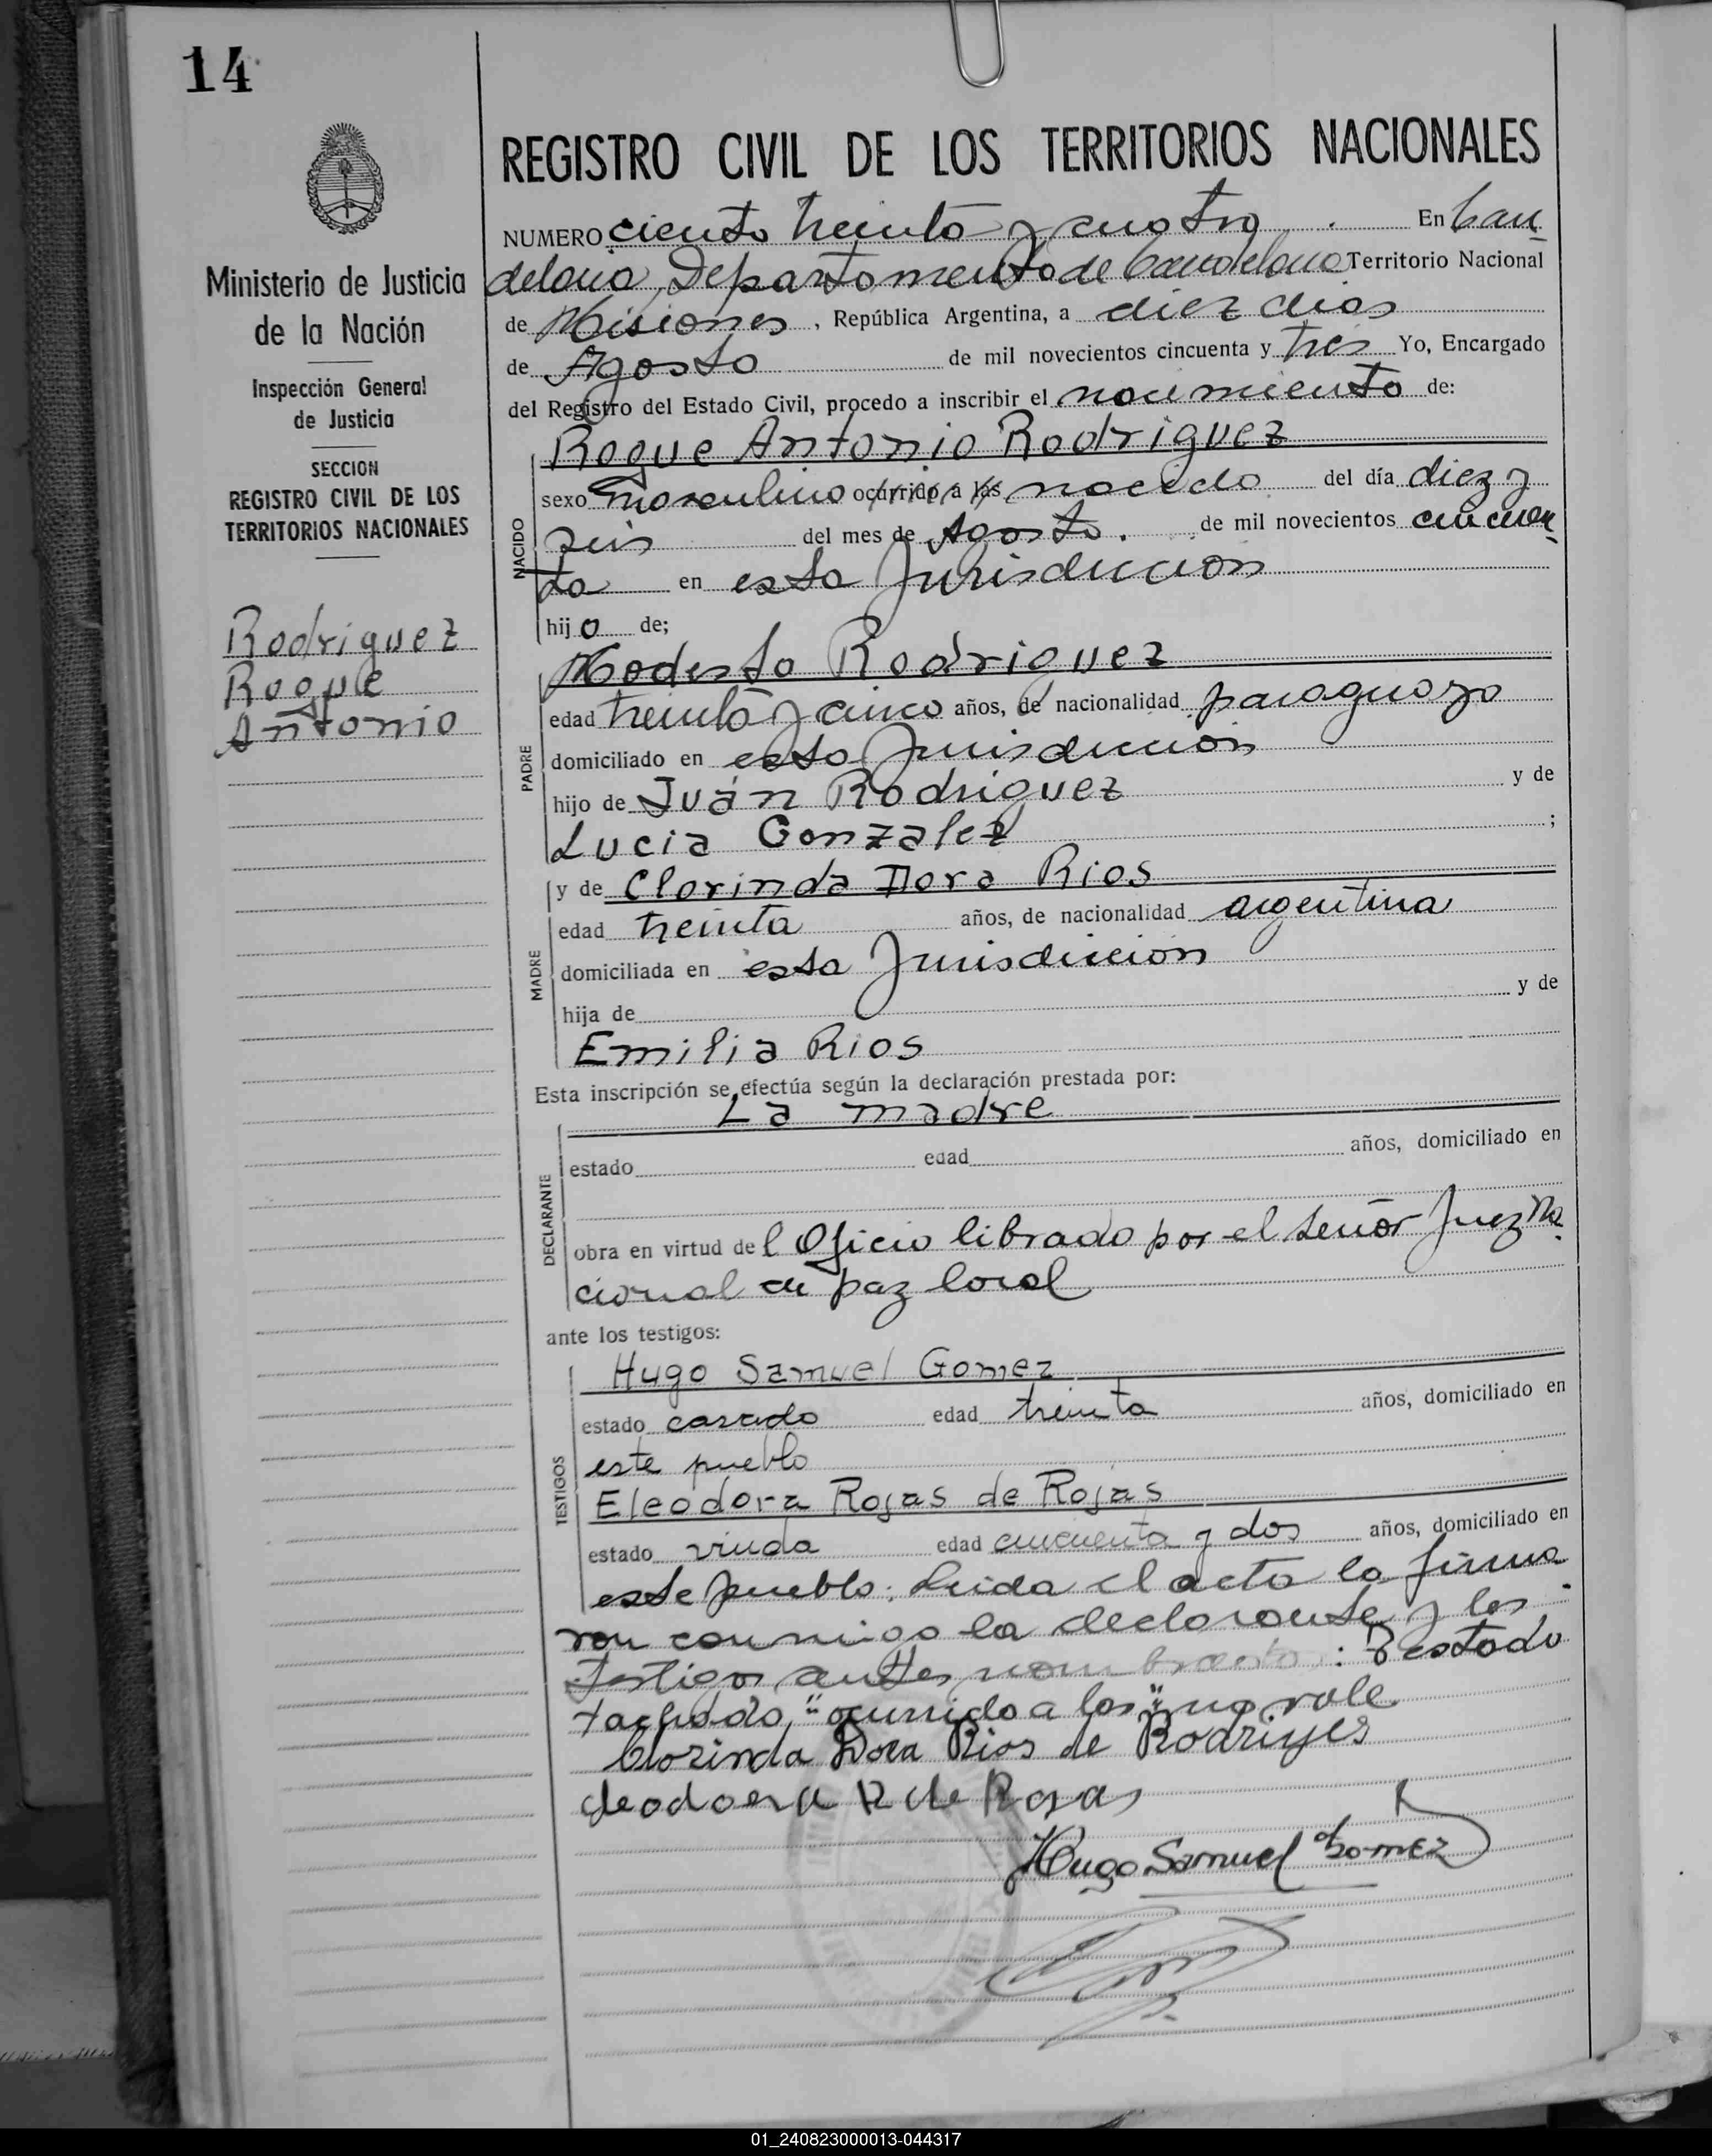 14
REGISTRO CIVIL DE LOS TERRITORIOS NACIONALES
Ministerio de Justicia
de la Nación
Inspección General
de Justicia
SECCION
REGISTRO CIVIL DE LOS
TERRITORIOS NACIONALES
Rodriguez
Roque
Antonio
NUMERO ciento treinta y cuatro. En Can
delaria, Departamento de Candelaria Territorio Nacional
de Misiones, República Argentina, a diez dias
de Agosto de mil novecientos cincuenta y tres Yo, Encargado
del Registro del Estado Civil, procedo a inscribir el nacimiento de:
Roque Antonio Rodriguez
NACIDO
sexo masculino ocurrido a las nacido del día diez y
seis del mes de Agosto. de mil novecientos cincuen
ta en esta Jurisdiccion
hijo de;
PADRE
Modesto Rodriguez
edad treinta y cinco años, de nacionalidad paraguayo
domiciliado en esta Jurisdiccion
hijo de Juán Rodriguez y de
Lucia Gonzalez ;
MADRE
y de Clorinda Dora Rios
edad treinta años, de nacionalidad argentina
domiciliada en esta Jurisdiccion
hija de y de
Emilia Rios
Esta inscripción se efectúa según la declaración prestada por:
La madre
DECLARANTE
estado edad años, domiciliado en
obra en virtud del Oficio librado por el señor Juez Na
cional de paz local
ante los testigos:
TESTIGOS
Hugo Samuel Gomez
estado casado edad treinta años, domiciliado en
este pueblo
Eleodora Rojas de Rojas
estado viuda edad cincuenta y dos años, domiciliado en
este pueblo. Leida el acta la firma
ron conmigo la declarante y los
testigos antes nombrados: Testado
tachado, "ocurrido a las" no vale
Clorinda Dora Rios de Rodrigues
R de Rojas
Hugo Samuel Gomez
01_240823000013-044317